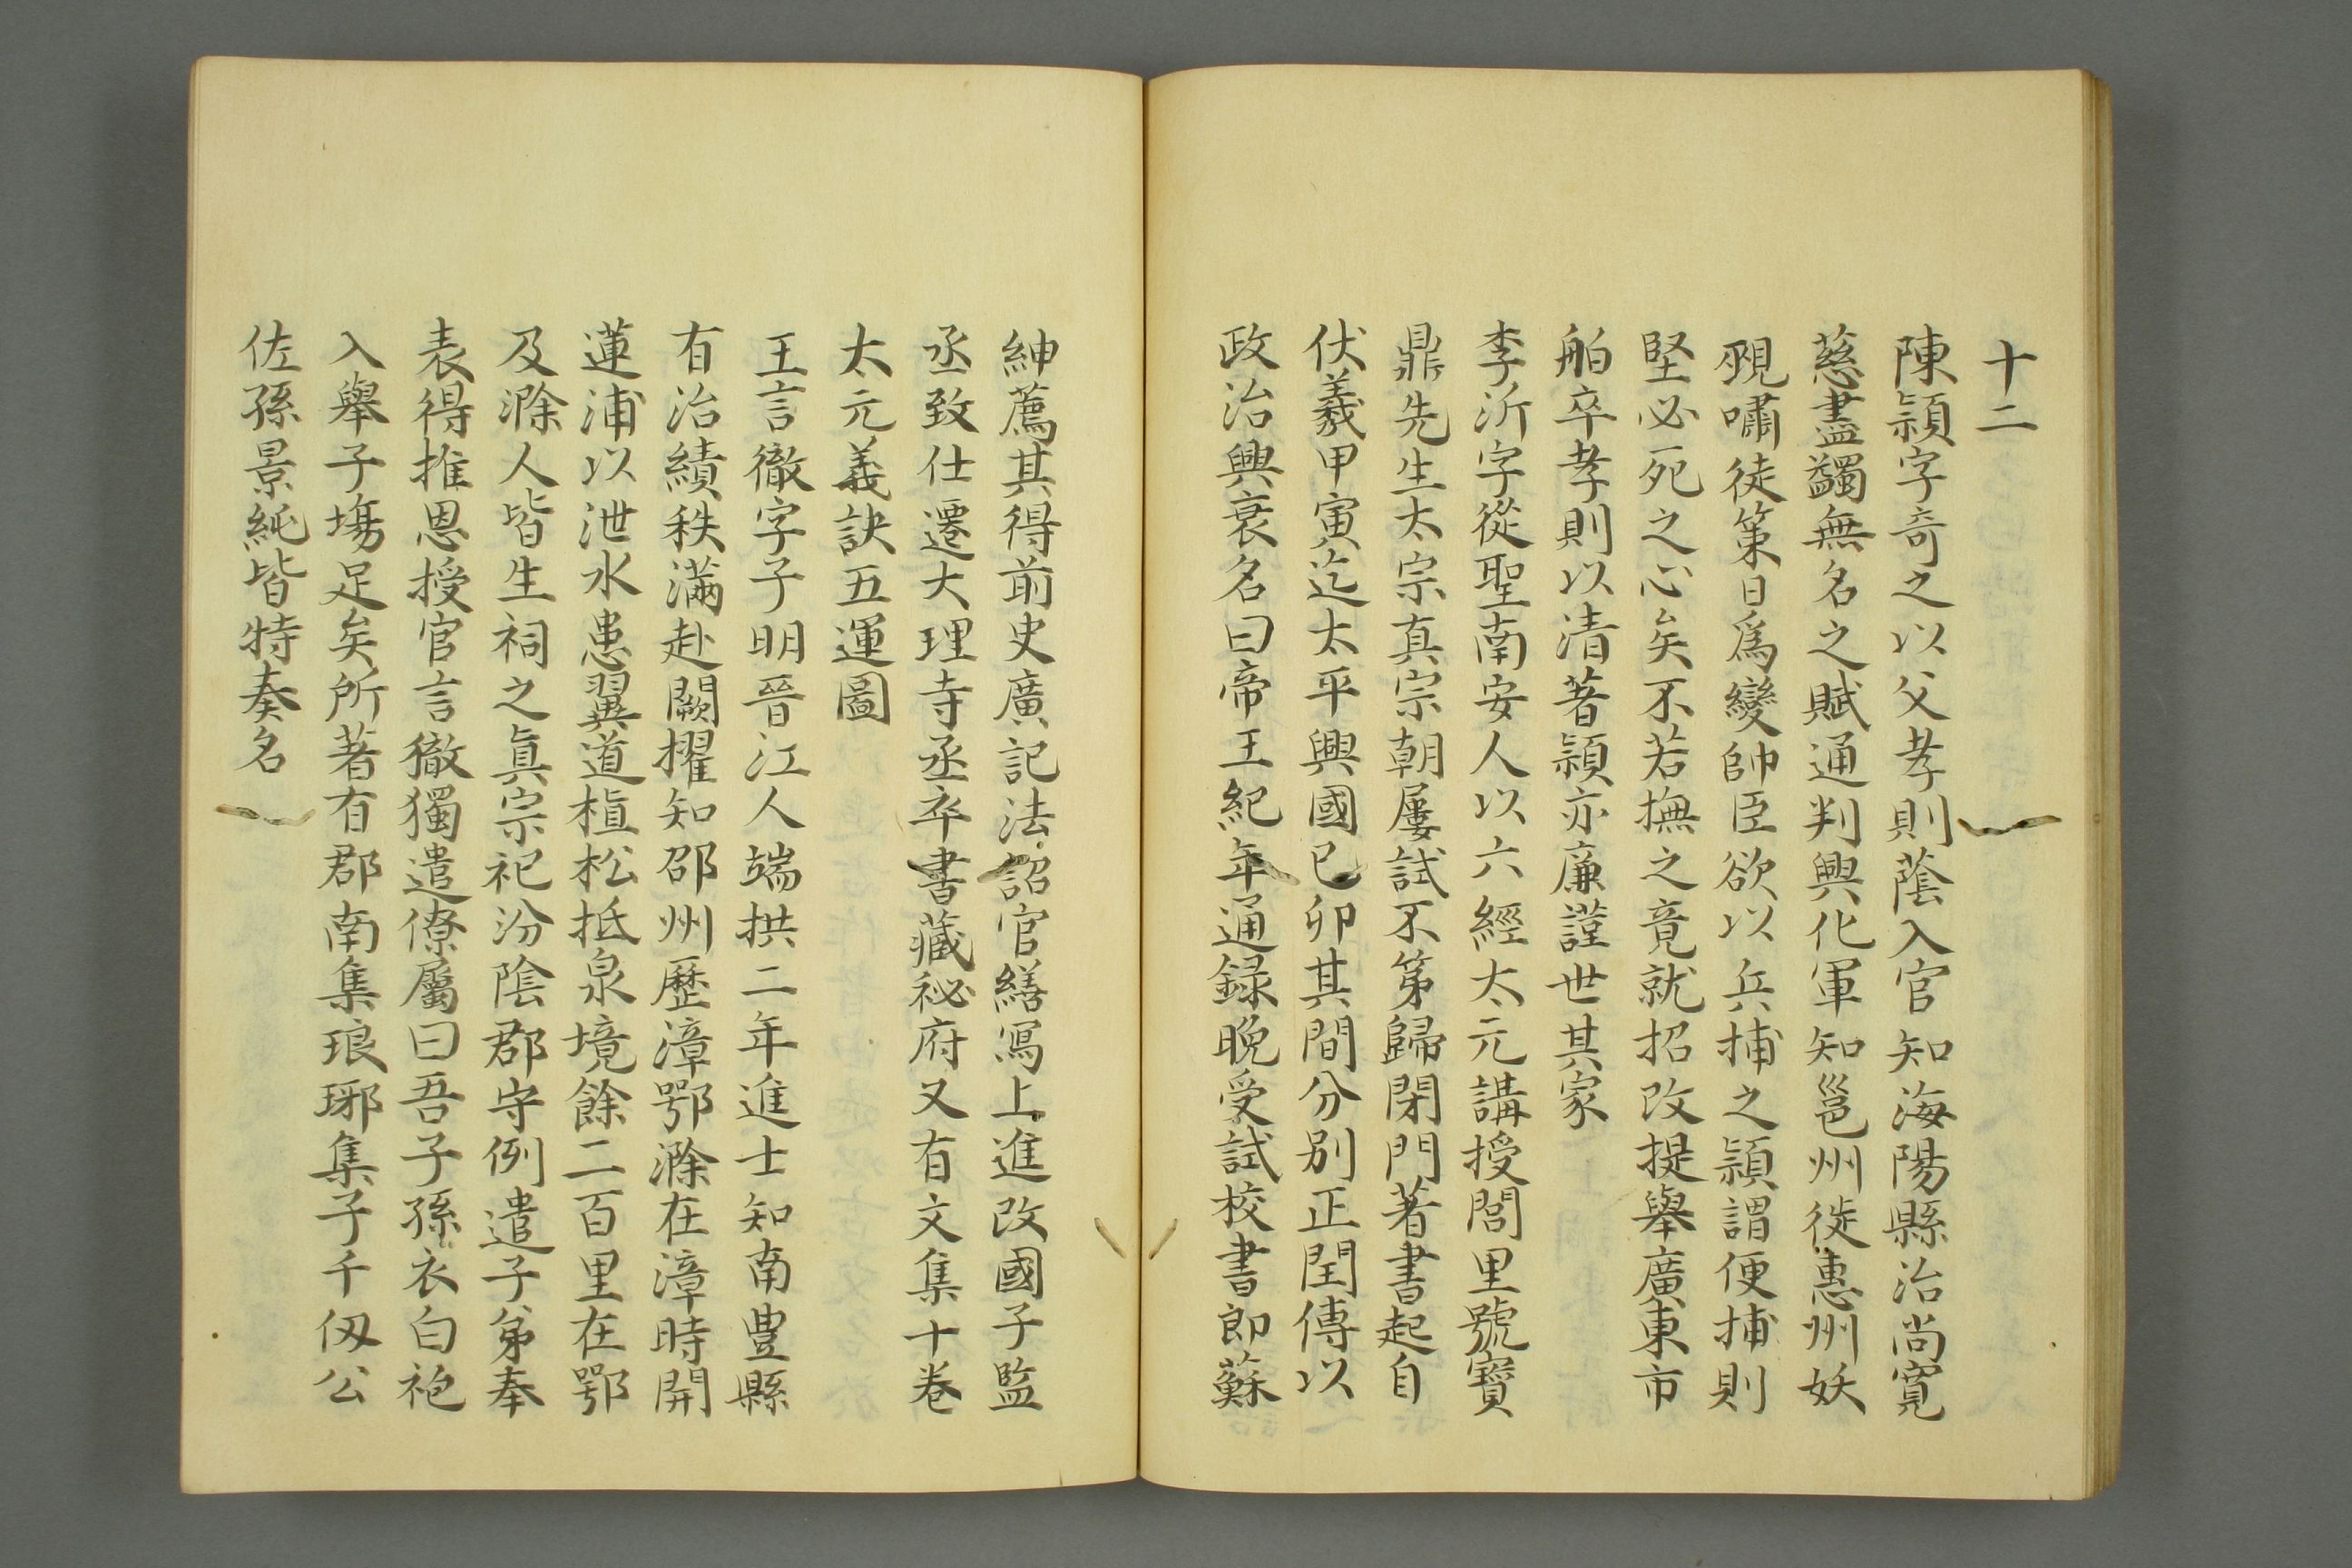 十二
陳頴字奇之以父孝則蔭入官知海陽縣治尚寬
慈盡蠲無名之賦通判興化軍知邕州徙惠州妖
覡嘯徒策日爲變帥臣欲以兵捕之頴謂便捕則
堅必死之心矣不若撫之竟就招改提舉廣東市
舶卒孝則以清著頴亦廉謹世其家
李沂字從聖南安人以六經太元講授閭里號寶
鼎先生太宗真宗朝屢試不第歸閉門著書起自
伏羲甲寅迄太平興國已卯其間分别正閏傳以
政治興衰名曰帝王紀年通録晚受試校書郎蘇
紳薦其得前史廣記法詔官繕寫上進改國子監
丞致仕遷大理寺丞卒書藏祕府又有文集十卷
太元義訣五運圖
王言徹字子明晉江人端拱二年進士知南豊縣
有治績秩滿赴闕擢知邵州歷漳鄂滁在漳時開
蓮浦以泄水患翼道植松抵泉境餘二百里在鄂
及滁人皆生祠之眞宗祀汾陰郡守例遣子弟奉
表得推恩授官言徹獨遣僚屬曰吾子孫衣白袍
入舉子塲足矣所著有郡南集琅琊集子千仞公
佐孫景純皆特奏名